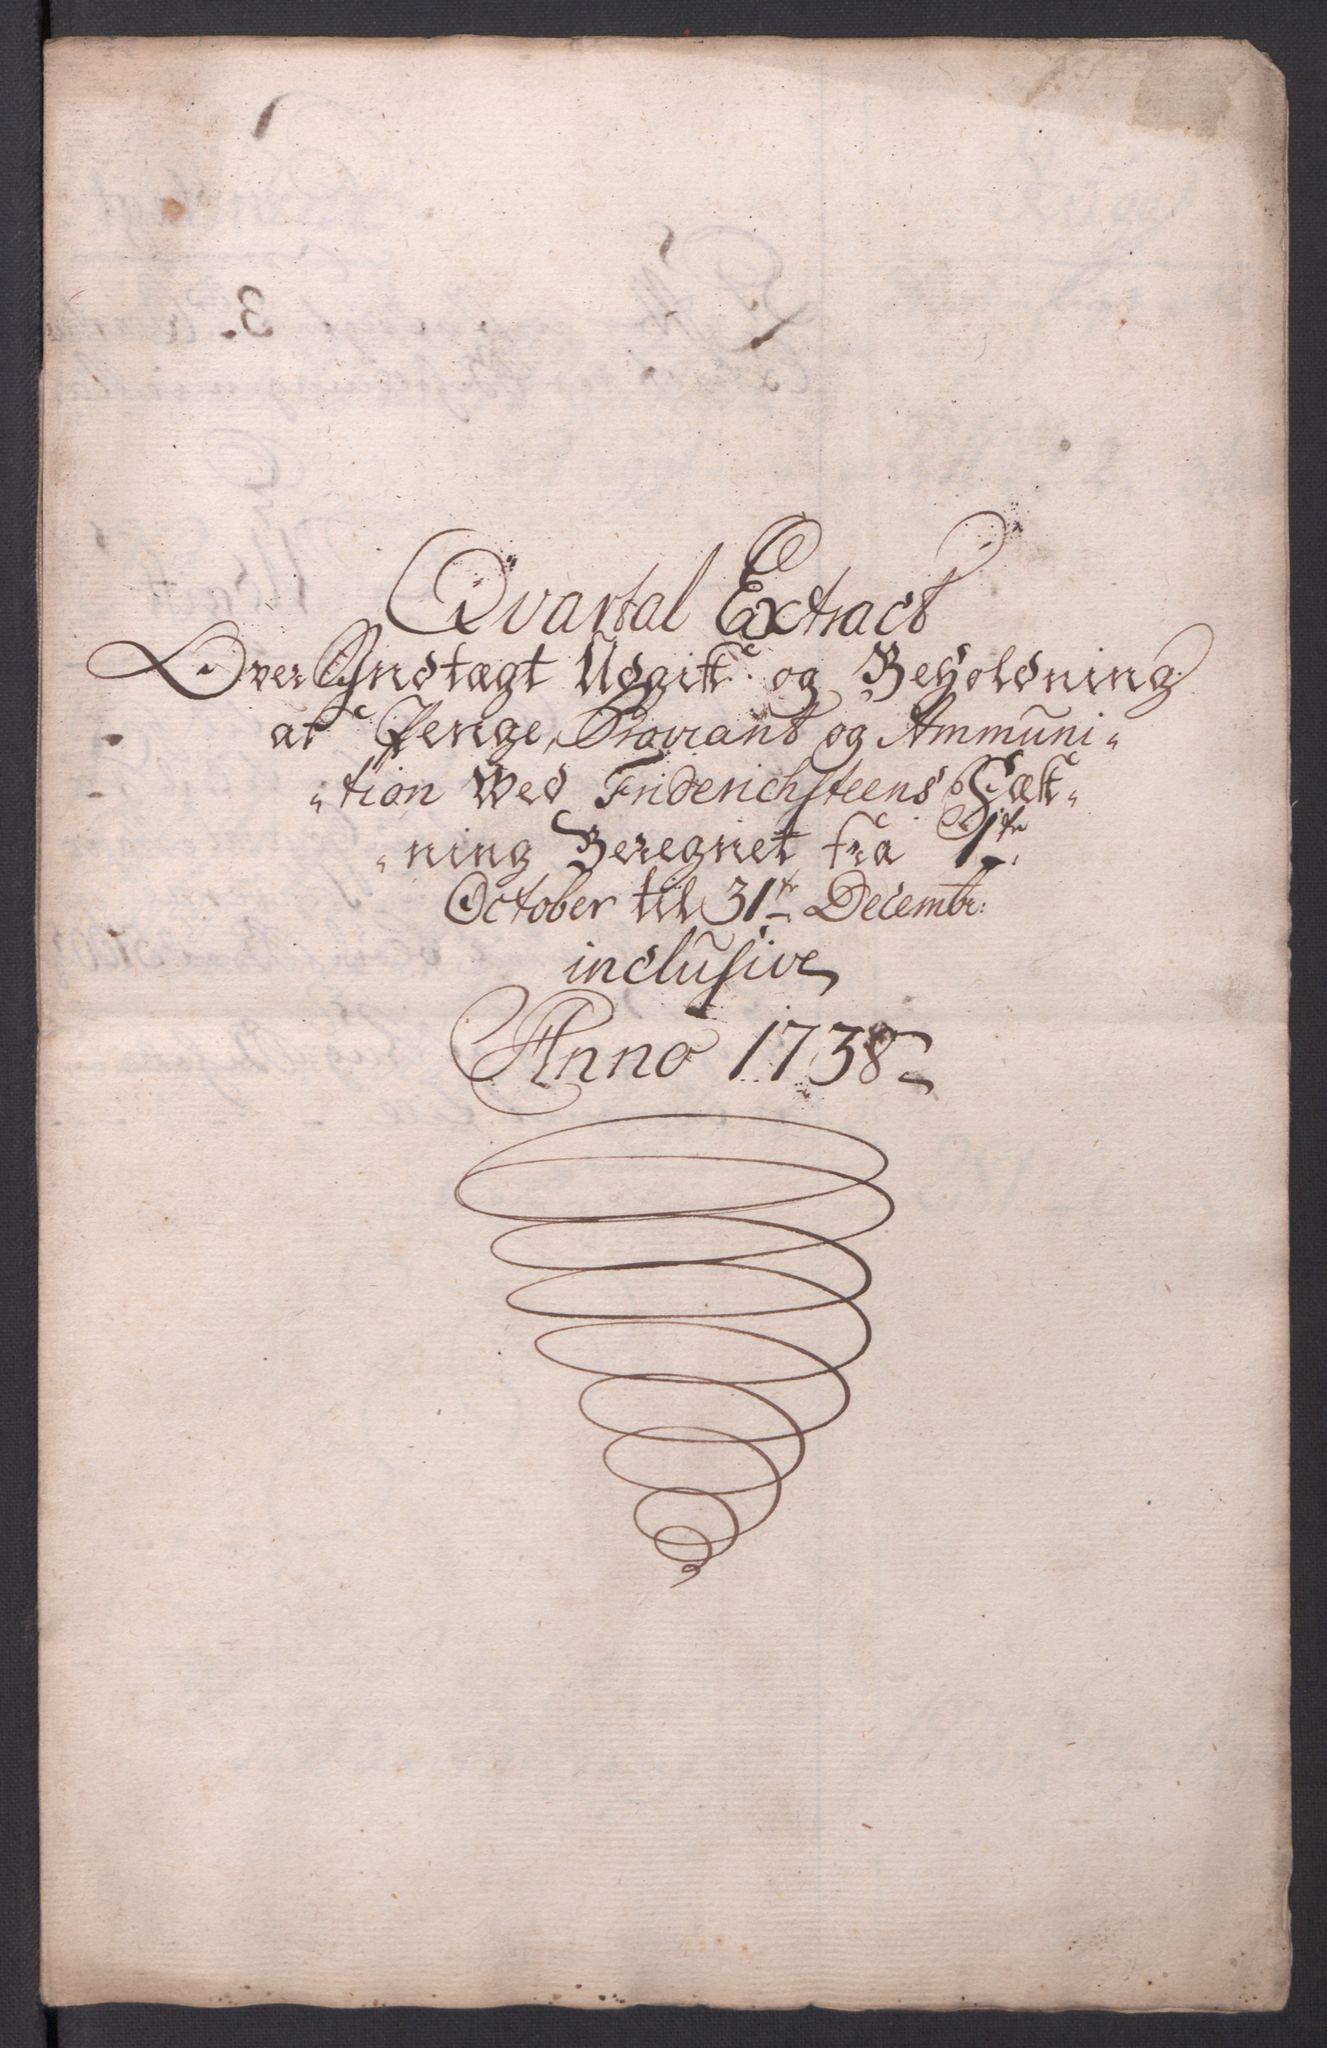 3.
Qvartal Extract
Over Jndtægt Udgift og Beholdning
af Penge, Proviant og Ammuni„
„tion Wed Friderichsteens Fæst„
„ning Beregnet fra 1te
October til 31te Decembr:
inclusive
Anno 1738